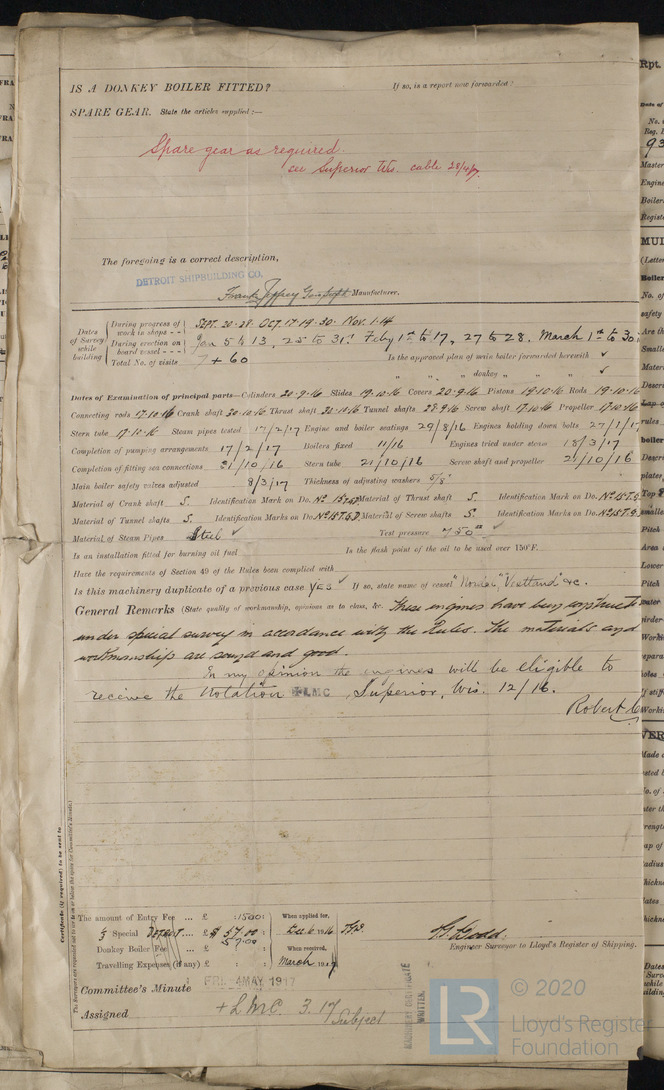 IS A DONKEY BOILER FITTED? If so, is a report now forwarded?
SPARE GEAR. State the articles supplied :—
Spare gear as required
see Superior Wis. cable
The foregoing is a correct description,
DETROIT SHIPBUILDING CO.
Manufacturer.
Dates of Survey while building
During progress of work in shops - - SEPT. 20-28. OCT. 17-19-30. Nov. 1-14
During erection on board vessel - - - Jan 5 to 13, 25 to 31st Feby 1st to 17, 27 to 28. March 1st to 30
Total No. of visits 7 + 60 Is the approved plan of main boiler forwarded herewith ✓
" " " donkey " " " ✓
Dates of Examination of principal parts—Cylinders 20-9-16 Slides 19-10-16 Covers 20-9-16 Pistons 19-10-16 Rods 19-10-16
Connecting rods 17-10-16 Crank shaft 20-10-16 Thrust shaft 20-10-16 Tunnel shafts 28-9-16 Screw shaft 17-10-16 Propeller 17-10-16
Stern tube 17-10-16 Steam pipes tested 17/2/17 Engine and boiler seatings 29/8/16 Engines holding down bolts 27/1/17
Completion of pumping arrangements 17/2/17 Boilers fixed 11/16 Engines tried under steam 18/3/17
Completion of fitting sea connections 21/10/16 Stern tube 21/10/16 Screw shaft and propeller 21/10/16
Main boiler safety valves adjusted 8/3/17 Thickness of adjusting washers 5/8"
Material of Crank shaft S. Identification Mark on Do. Material of Thrust shaft S. Identification Mark on Do.
Material of Tunnel shafts S. Identification Marks on Do. Material of Screw shafts S. Identification Marks on Do.
Material of Steam Pipes Steel ✓ Test pressure 750# ✓
Is an installation fitted for burning oil fuel Is the flash point of the oil to be used over 150°F.
Have the requirements of Section 49 of the Rules been complied with
Is this machinery duplicate of a previous case Yes ✓ If so, state name of vessel &c.
General Remarks (State quality of workmanship, opinions as to class, &c. These engines have been constructed
under special survey in accordance with the Rules. The materials and
workmanship are sound and good.
In my opinion the engines will be eligible to
receive the Notation ✠LMC Superior, Wis. 12/16.
Robert
Certificate (if required) to be sent to
The amount of Entry Fee ... £ : 15.00 : When applied for,
Special ... £ $ 57.00 : Dec 6 1916
Donkey Boiler Fee ... £ 57.00 When received,
Travelling Expenses (if any) £ : : March 19
Engineer Surveyor to Lloyd's Register of Shipping.
Committee's Minute FRI. 4 MAY 1917
Assigned + LMC. 3. 17
Subject
MACHINERY CERTIFICATE
WRITTEN.
LR
© 2020
Lloyd's Register
Foundation